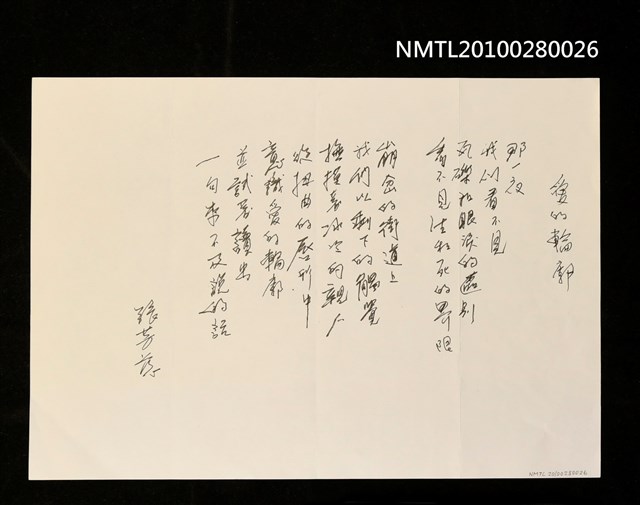 NMTL20100280026
愛的輪郭
那一夜
我們看不見
瓦礫和眼淚的區別
看不見生和死的界限
崩岔的街道上
我們以剩下的觸覺
撫摸著冰冷的親人
從扭曲的唇形中
意識愛的輪廓
並試著讀出
一句來不及說的話
張芳慈
NMTL 20100280026